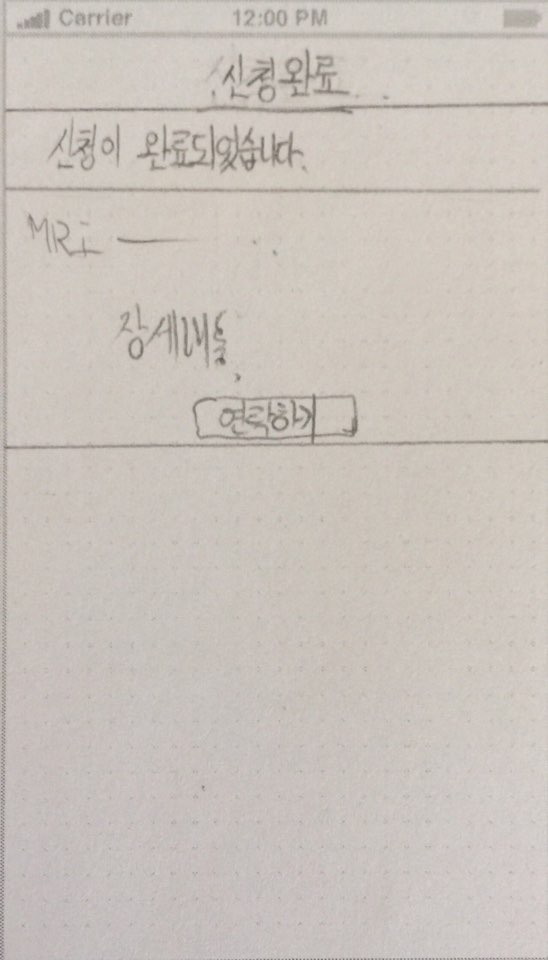 Carrier 12:00 PM
신청완료
신청이 완료되있습니다.
MRI
연락하기